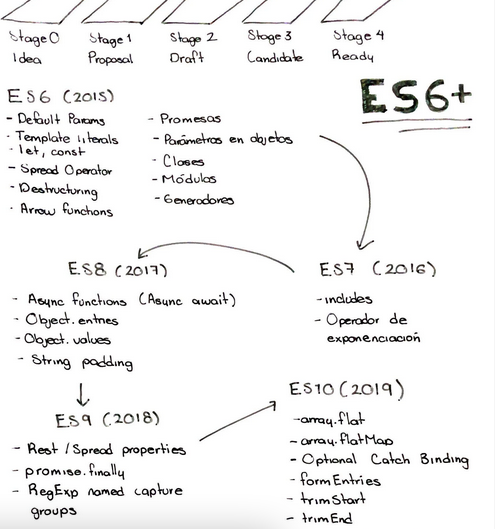 Stage 0
Idea
Stage 1
Proposal
Stage 2
Draft
Stage 3
Candidate
Stage 4
Ready
ES6+
ES6 (2015)
- Default Params
· Template literals
· let, const
- Spread Operator
- Destructuring
· Arrow functions
- Promesas
- Parámetros en objetos
· Clases
- Módulos
- Generadores
ES7 (2016)
- includes
- Operador de
exponenciación
ES8 (2017)
- Async functions (Async await)
- Object.entries
- Object.values
- String padding
ES9 (2018)
- Rest / Spread properties
- promise.finally
- RegExp named capture
groups
ES10 (2019)
- array.flat
- array.flatMap
- Optional Catch Binding
- formEntries
- trimStart
- trimEnd